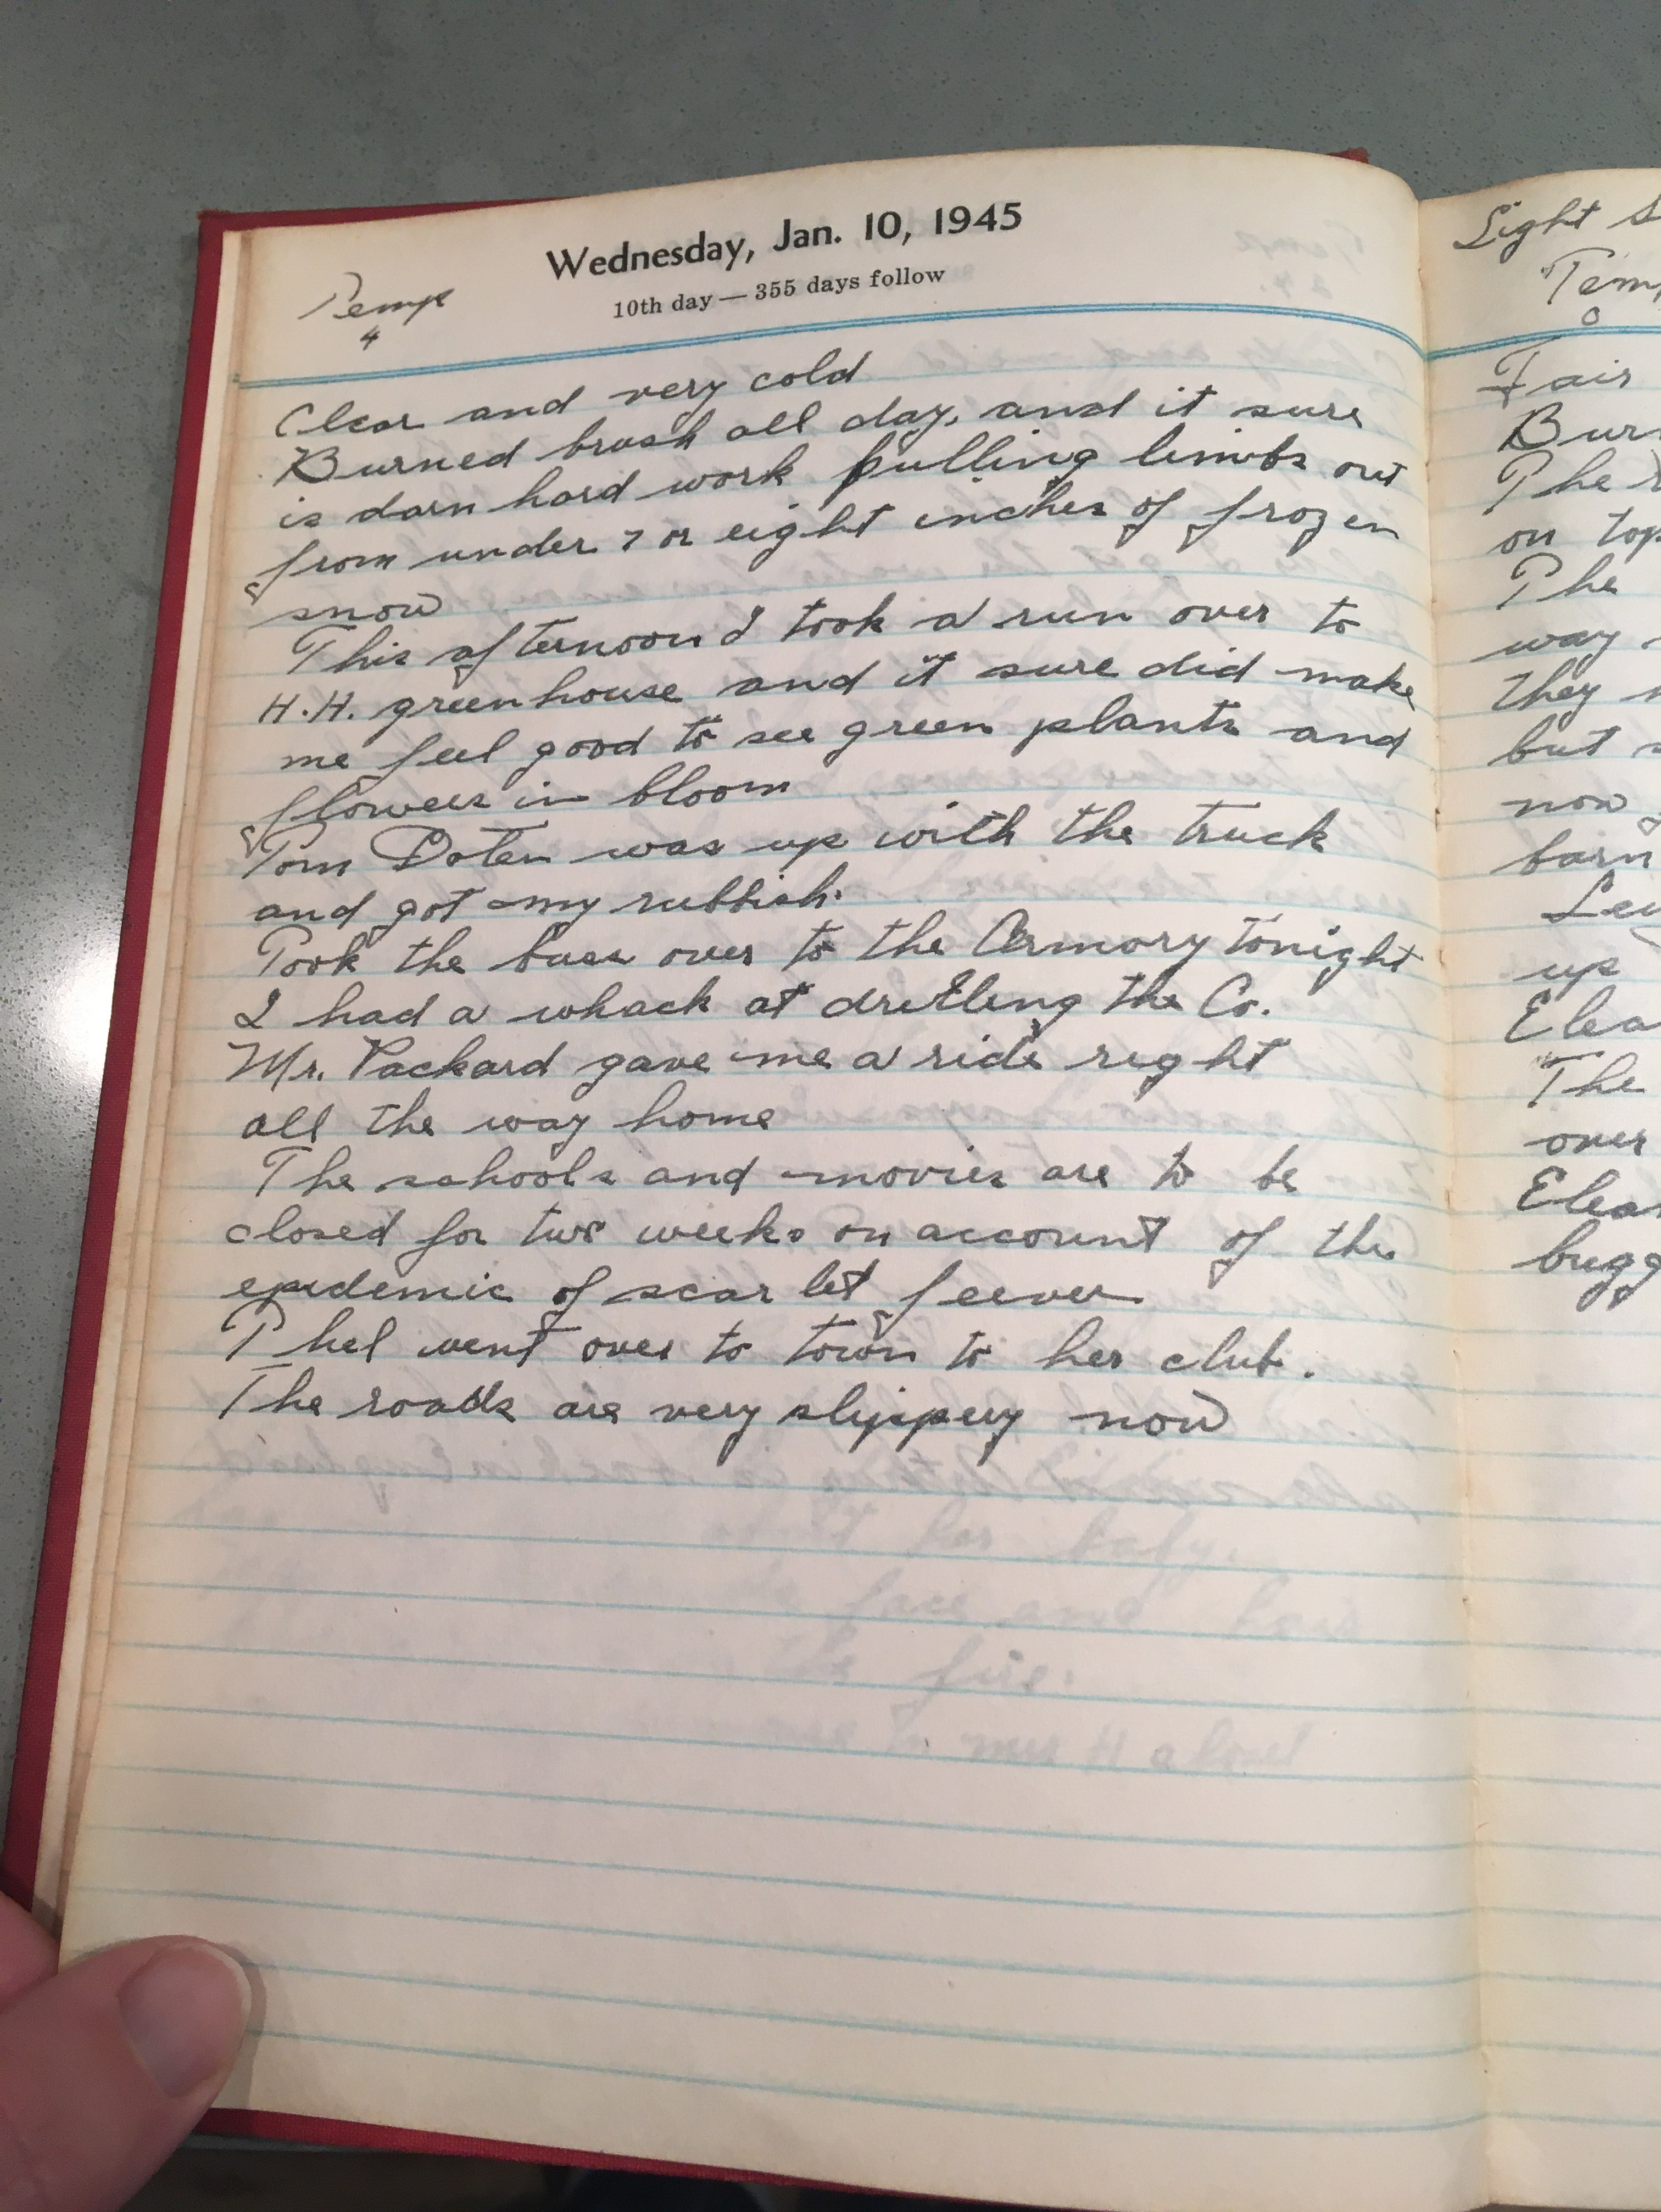 Wednesday, Jan. 10, 1945
10th day — 355 days follow
Temp
4
Clear and very cold
Burned brush all day, and it sure
is darn hard work pulling limbs out
from under 7 or eight inches of frozen
snow
This afternoon I took a run over to
H.H. greenhouse and it sure did make
me feel good to see green plants and
flowers in bloom
Tom Doten was up with the truck
and got my rubbish.
Took the buss over to the Armory tonight
I had a whack at drilling the Co.
Mr. Packard gave me a ride right
all the way home
The schools and movies are to be
closed for two weeks on account of the
epidemic of scarlet feever
Thel went over to town to her club.
The roads are very slippery now
Light
Temp
0
Fair
Burn
The
on top
The
way
they
but
now
barn
up
Elea
The
over
Elea
bugg